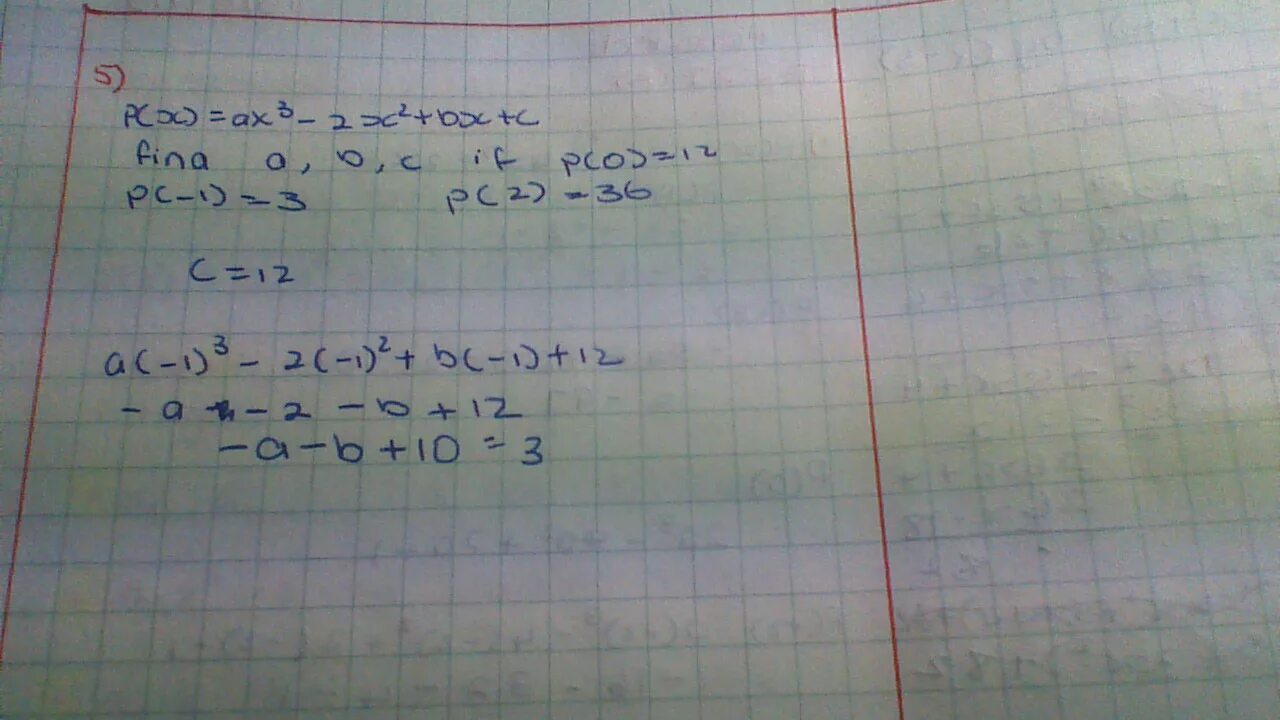 5)
P(x) = ax³ - 2x² + bx + c
find a, b, c if p(0) = 12
p(-1) = 3 p(2) = 36
c = 12
a(-1)³ - 2(-1)² + b(-1) + 12
- a - 2 - b + 12
- a - b + 10 = 3